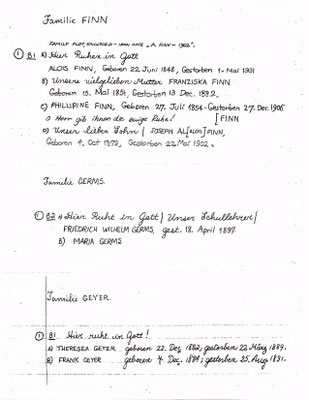 Familie FINN
FAMILY PLOT, ENCLOSED - IRON GATE "A. FINN - 1902".
① B1 A) Hier Ruhen in Gott
ALOIS FINN, Geboren 22 Juni 1848, Gestorben 1. Mai 1931
B) Unsere vielgeliebten Mutter FRANZISKA FINN
Geboren 15. Mai 1851, Gestorben 13 Dec. 1892.
C) PHILLIPINE FINN, Geboren 27. Juli 1854 - Gestorben 27. Dec. 1906
O Herr gib ihnen die ewige Ruhe! [FINN
D) Unser lieber Sohn / JOSEPH AL[OIS] FINN,
Geboren 4. Oct 1879, Gestorben 22 Mai 1902.
Familie GERMS.
① B2 A) Hier Ruht in Gott / Unser Schullehrer /
FRIEDRICH WILHELM GERMS, gest. 18. April 1897.
B) MARIA GERMS
Familie GEYER.
① B1 Hier ruht in Gott!
A) THERESEA GEYER geboren 22. Dez. 1882; gestorben 22 März 1889.
B) FRANK GEYER geboren 4 Dec. 1884; gestorben 25. Aug 1891.